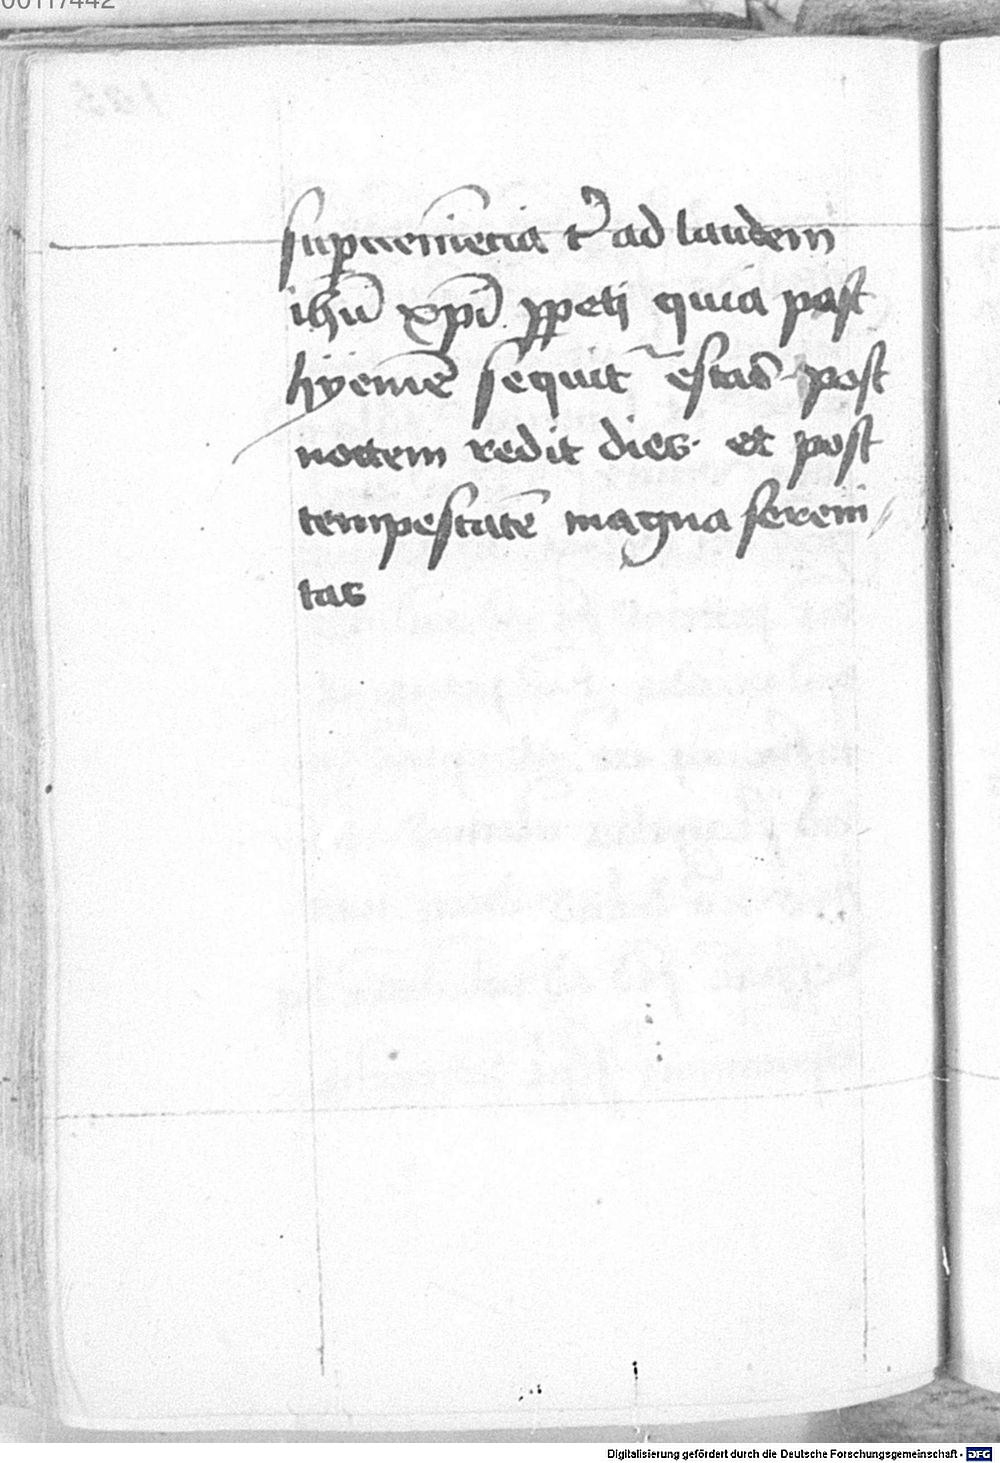 supueniēcia t͛ ad laudem
ihū xpī ppeti quia post
hyemē sequit᷑ estas post
noctem redit dies. et post
tempestatē magna sereni
tas
Digitalisierung gefördert durch die Deutsche Forschungsgemeinschaft - DFG